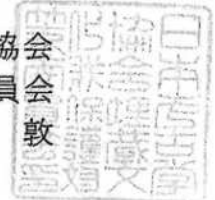 協会
員会
敦
日本考古学
協会埋蔵文
化財保護対